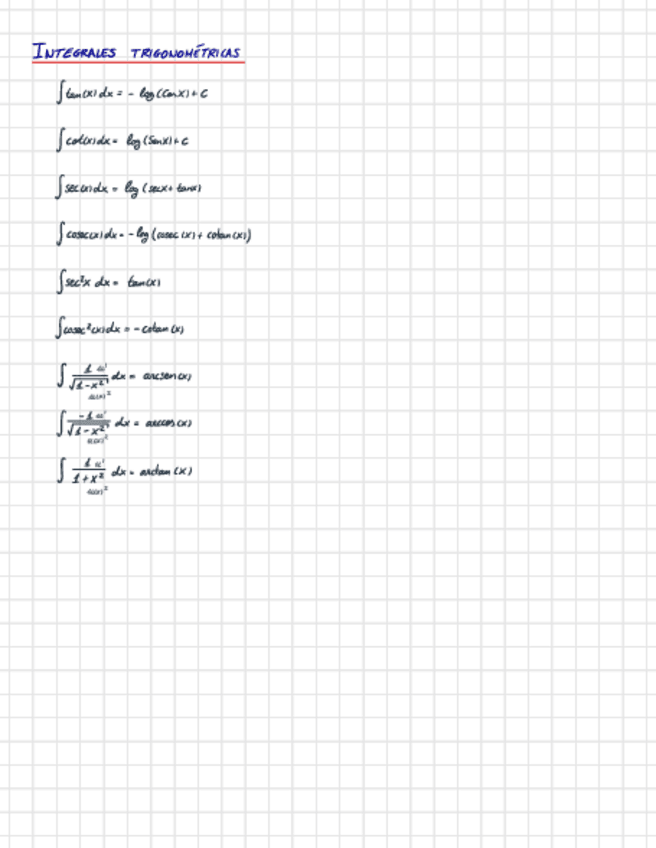 INTEGRALES TRIGONOMÉTRICAS
∫tan(x)dx = - log(cosx)+c
∫cot(x)dx = log(senx)+c
∫sec(x)dx = log(secx+tanx)
∫cosec(x)dx = -log(cosec(x)+cotan(x))
∫sec²x dx = tan(x)
∫cosec²(x)dx = -cotan(x)
∫ 1 u' / √1-x² dx = arcsen(x)
u(x)²
∫ -1 u' / √1-x² dx = arccos(x)
u(x)²
∫ 1 u' / 1+x² dx = arctan(x)
u(x)²